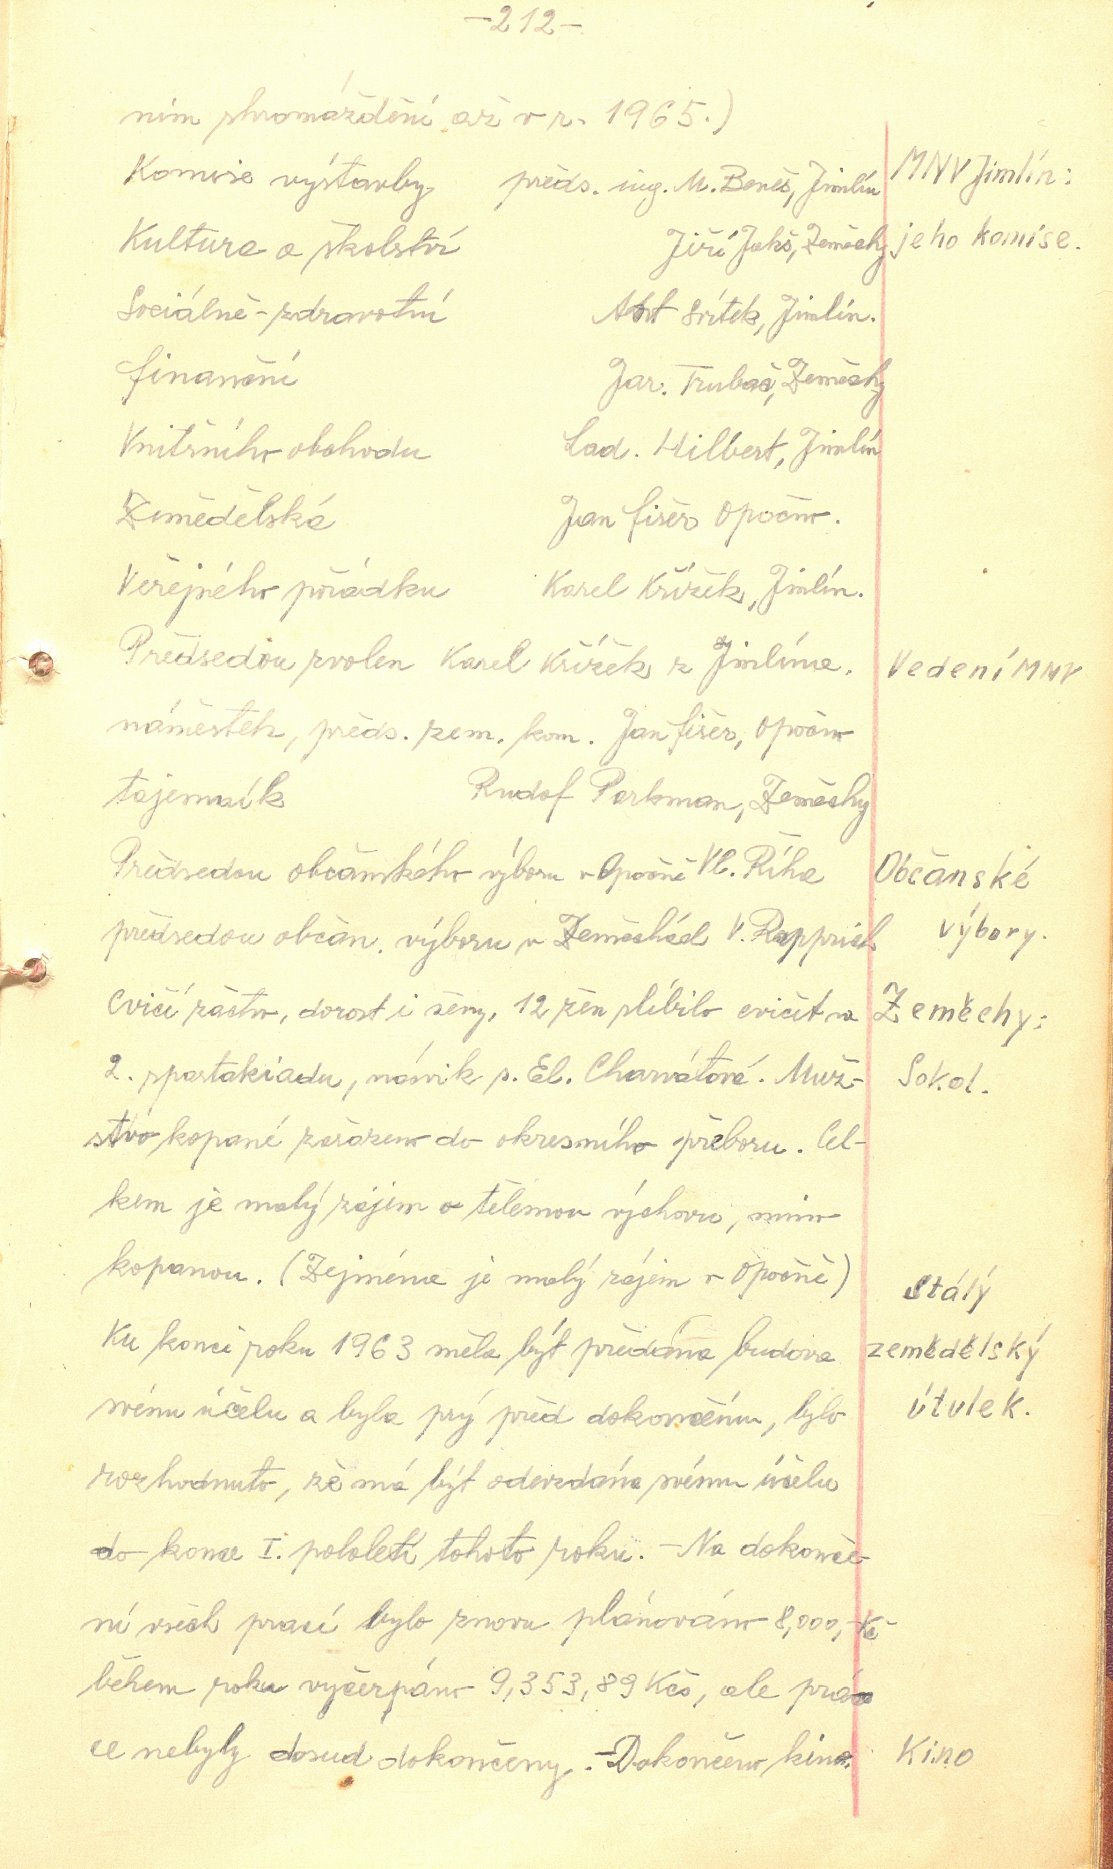 -212-
ním shromáždění až v r. 1965.)
Komise výstavby předs. ing. M. Beneš, Jimlín
MNV Jimlín:
Kultura a školství Jiří Jakš, Zeměchy
jeho komise.
Sociálně-zdravotní Ant Svítek, Jimlín.
finanční Jar. Trubač, Zeměchy
Vnitřního obchodu Lad. Hilbert, Jimlín
Zemědělská Jan Fišer Opočno.
Veřejného pořádku Karel Křížek, Jimlín.
Předsedou zvolen Karel Křížek z Jimlína.
Vedení MNV
náměstek, předs. zem. kom. Jan Fišer, Opočno
tajemník Rudof Parkman, Zeměchy
Předsedou občanského výboru v Opočně Vl. Říha
Občanské
předsedou občan. výboru v Zeměchách V. Rapprich
výbory.
Cvičí žáctvo, dorost i ženy, 12 žen slíbilo cvičit na
Zeměchy:
2. spartakiadu, nácvik s. El. Charvátová. Muž-
Sokol.
stvo kopané zařazeno do okresního přeboru. Cel-
kem je malý zájem o tělesnou výchovu, mimo
kopanou. (Zejména je malý zájem v Opočně)
Stálý
Ku konci roku 1963 měla být předána budova
zemědělský
svému účelu a byla prý před dokončením, bylo
útulek.
rozhodnuto, že má být odevzdána svému účelu
do konce I. pololetí tohoto roku. - Na dokonče-
ní všech prací bylo znovu plánováno 8,000,- Kč
během roku vyčerpáno 9,353,89 Kčs, ale prá-
ce nebyly dosud dokončeny. - Dokončeno kino.
Kino